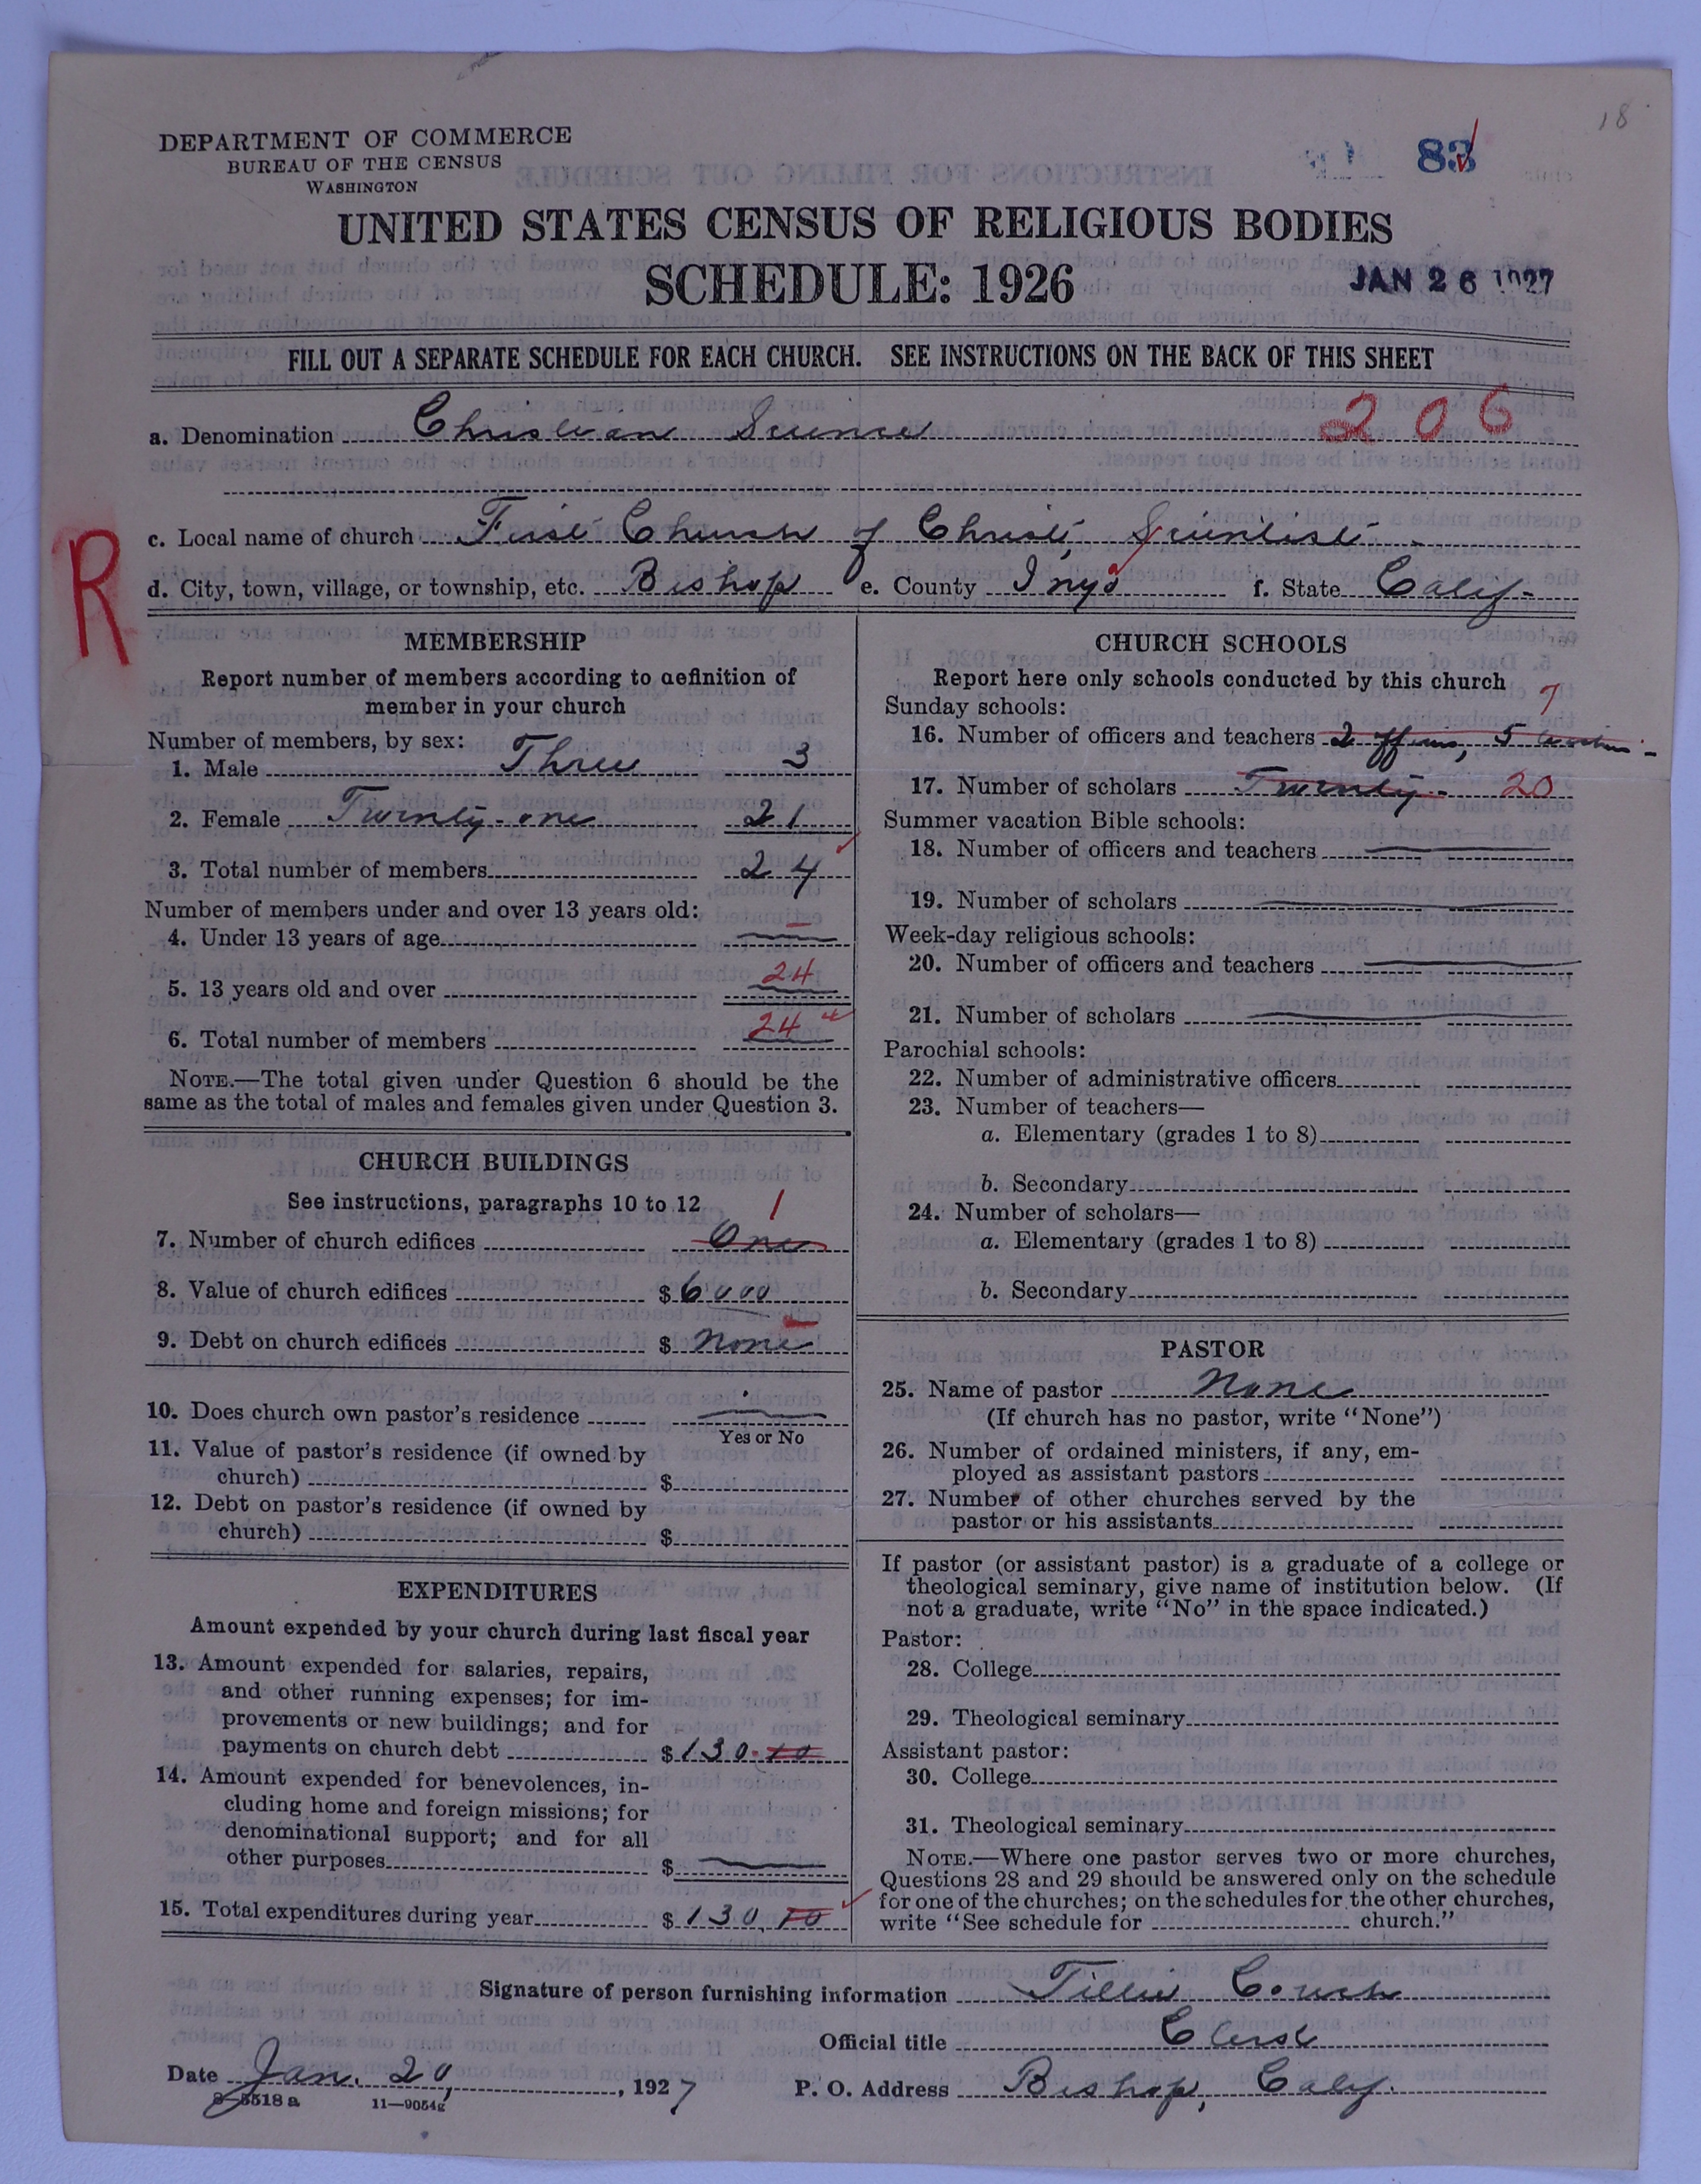 18
DEPARTMENT OF COMMERCE
BUREAU OF THE CENSUS
WASHINGTON
83
UNITED STATES CENSUS OF RELIGIOUS BODIES
SCHEDULE: 1926
JAN 26 1927
FILL OUT A SEPARATE SCHEDULE FOR EACH CHURCH. SEE INSTRUCTIONS ON THE BACK OF THIS SHEET
a. Denomination Christian Science 206
c. Local name of church First Church of Christ, Scientist
R
d. City, town, village, or township, etc. Bishop e. County Inyo f. State Calif.
MEMBERSHIP
Report number of members according to definition of
member in your church
Number of members, by sex:
1. Male Three 3
2. Female Twenty-one 21
3. Total number of members 24
Number of members under and over 13 years old:
4. Under 13 years of age —
5. 13 years old and over 24
6. Total number of members 24
NOTE.—The total given under Question 6 should be the
same as the total of males and females given under Question 3.
CHURCH BUILDINGS
See instructions, paragraphs 10 to 12
7. Number of church edifices One 1
8. Value of church edifices $ 6000
9. Debt on church edifices $ None
10. Does church own pastor's residence —
Yes or No
11. Value of pastor's residence (if owned by
church) $
12. Debt on pastor's residence (if owned by
church) $
EXPENDITURES
Amount expended by your church during last fiscal year
13. Amount expended for salaries, repairs,
and other running expenses; for im-
provements or new buildings; and for
payments on church debt $ 130.10
14. Amount expended for benevolences, in-
cluding home and foreign missions; for
denominational support; and for all
other purposes $ —
15. Total expenditures during year $ 130.10
CHURCH SCHOOLS
Report here only schools conducted by this church
Sunday schools: 7
16. Number of officers and teachers 2 officers, 5
17. Number of scholars Twenty- 20
Summer vacation Bible schools:
18. Number of officers and teachers —
19. Number of scholars —
Week-day religious schools:
20. Number of officers and teachers —
21. Number of scholars —
Parochial schools:
22. Number of administrative officers
23. Number of teachers—
a. Elementary (grades 1 to 8)
b. Secondary
24. Number of scholars—
a. Elementary (grades 1 to 8)
b. Secondary
PASTOR
25. Name of pastor None
(If church has no pastor, write "None")
26. Number of ordained ministers, if any, em-
ployed as assistant pastors
27. Number of other churches served by the
pastor or his assistants
If pastor (or assistant pastor) is a graduate of a college or
theological seminary, give name of institution below. (If
not a graduate, write "No" in the space indicated.)
Pastor:
28. College
29. Theological seminary
Assistant pastor:
30. College
31. Theological seminary
NOTE.—Where one pastor serves two or more churches,
Questions 28 and 29 should be answered only on the schedule
for one of the churches; on the schedules for the other churches,
write "See schedule for church."
Signature of person furnishing information Tillie Couch
Official title Clerk
Date Jan. 20, 1927 P. O. Address Bishop, Calif.
8-5518a 11—9054g